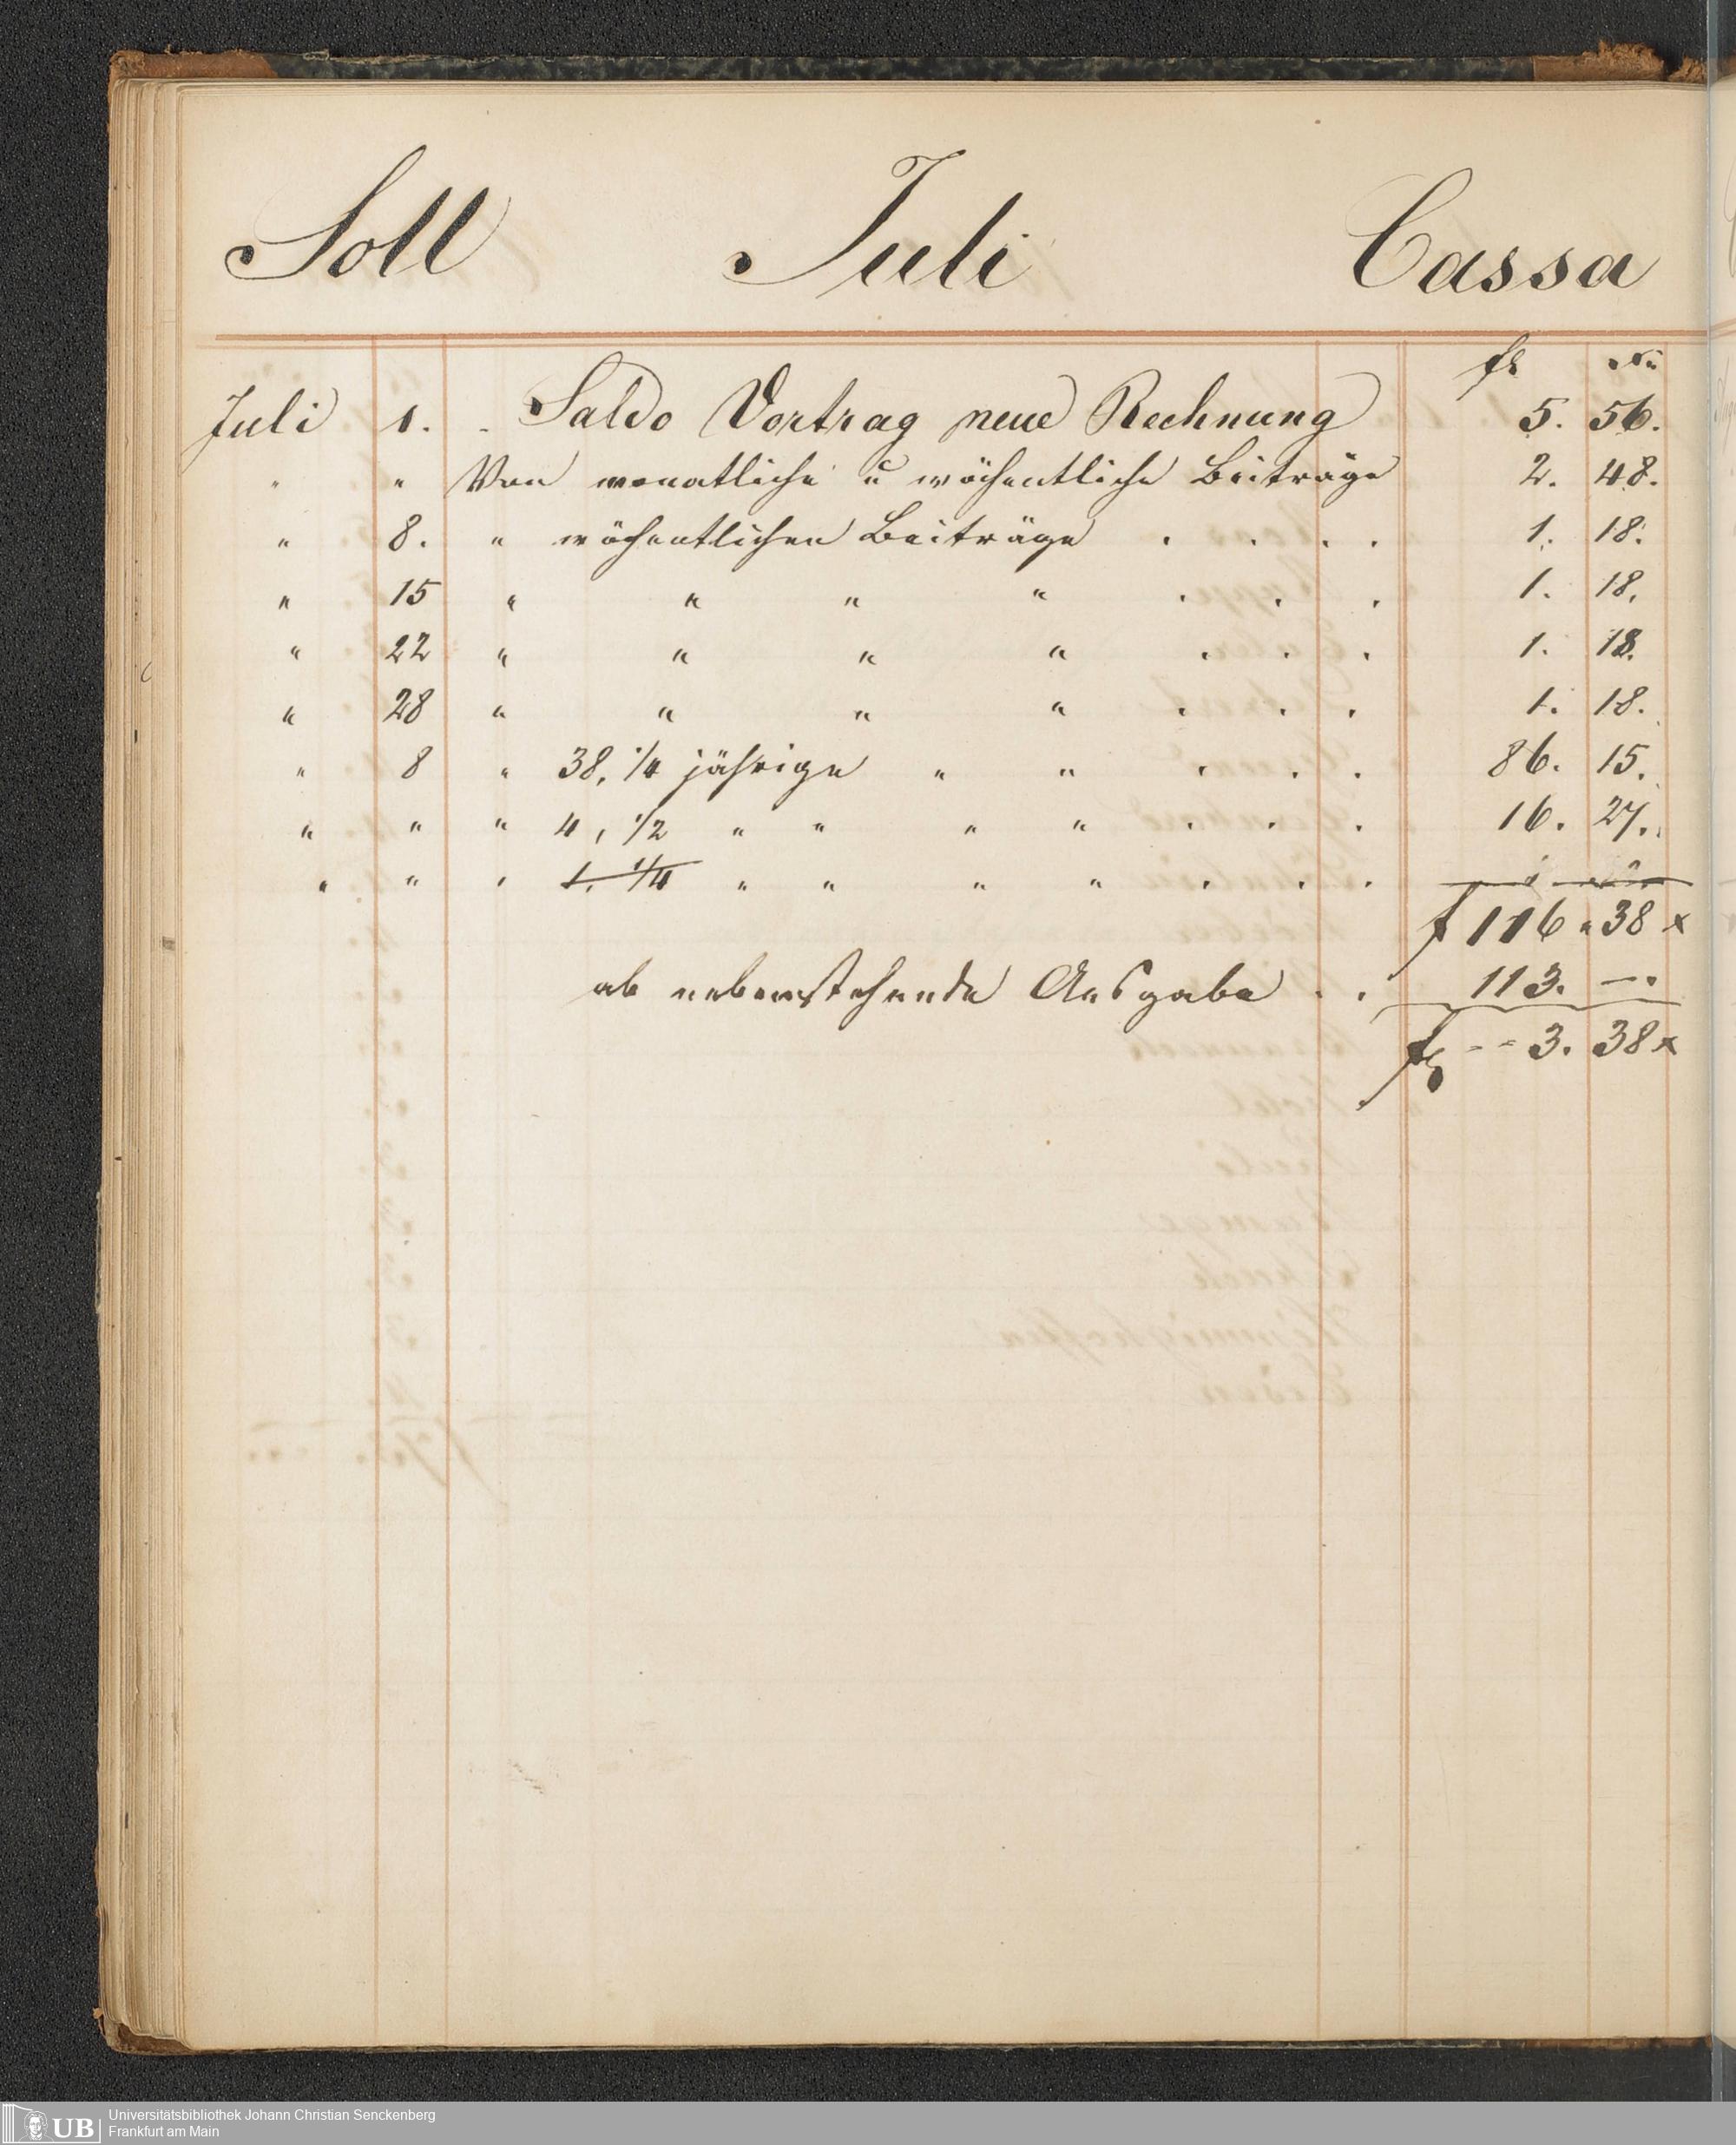 Soll Juli Cassa
fl Xr
Juli 1. Saldo Vortrag neue Rechnung 5. 56.
" " Von monatliche u wöchentliche Beiträge 2. 48.
" 8. " wöchentlichen Beiträge . . . . 1. 18.
" 15 " " " " . . . 1. 18.
" 22 " " " " . . . 1. 18.
" 28 " " " " . . . 1. 18.
" 8 " 38, 1/4 jährige " " . . . 86. 15.
" " " 4, 1/2 " " " " . . . 16. 27.
" " " 1. 1/4 " " " " . . .
f 116 " 38 x
ab nebenstehende Ausgabe . . 113. —.
fl - - 3. 38 x
UB Universitätsbibliothek Johann Christian Senckenberg
Frankfurt am Main